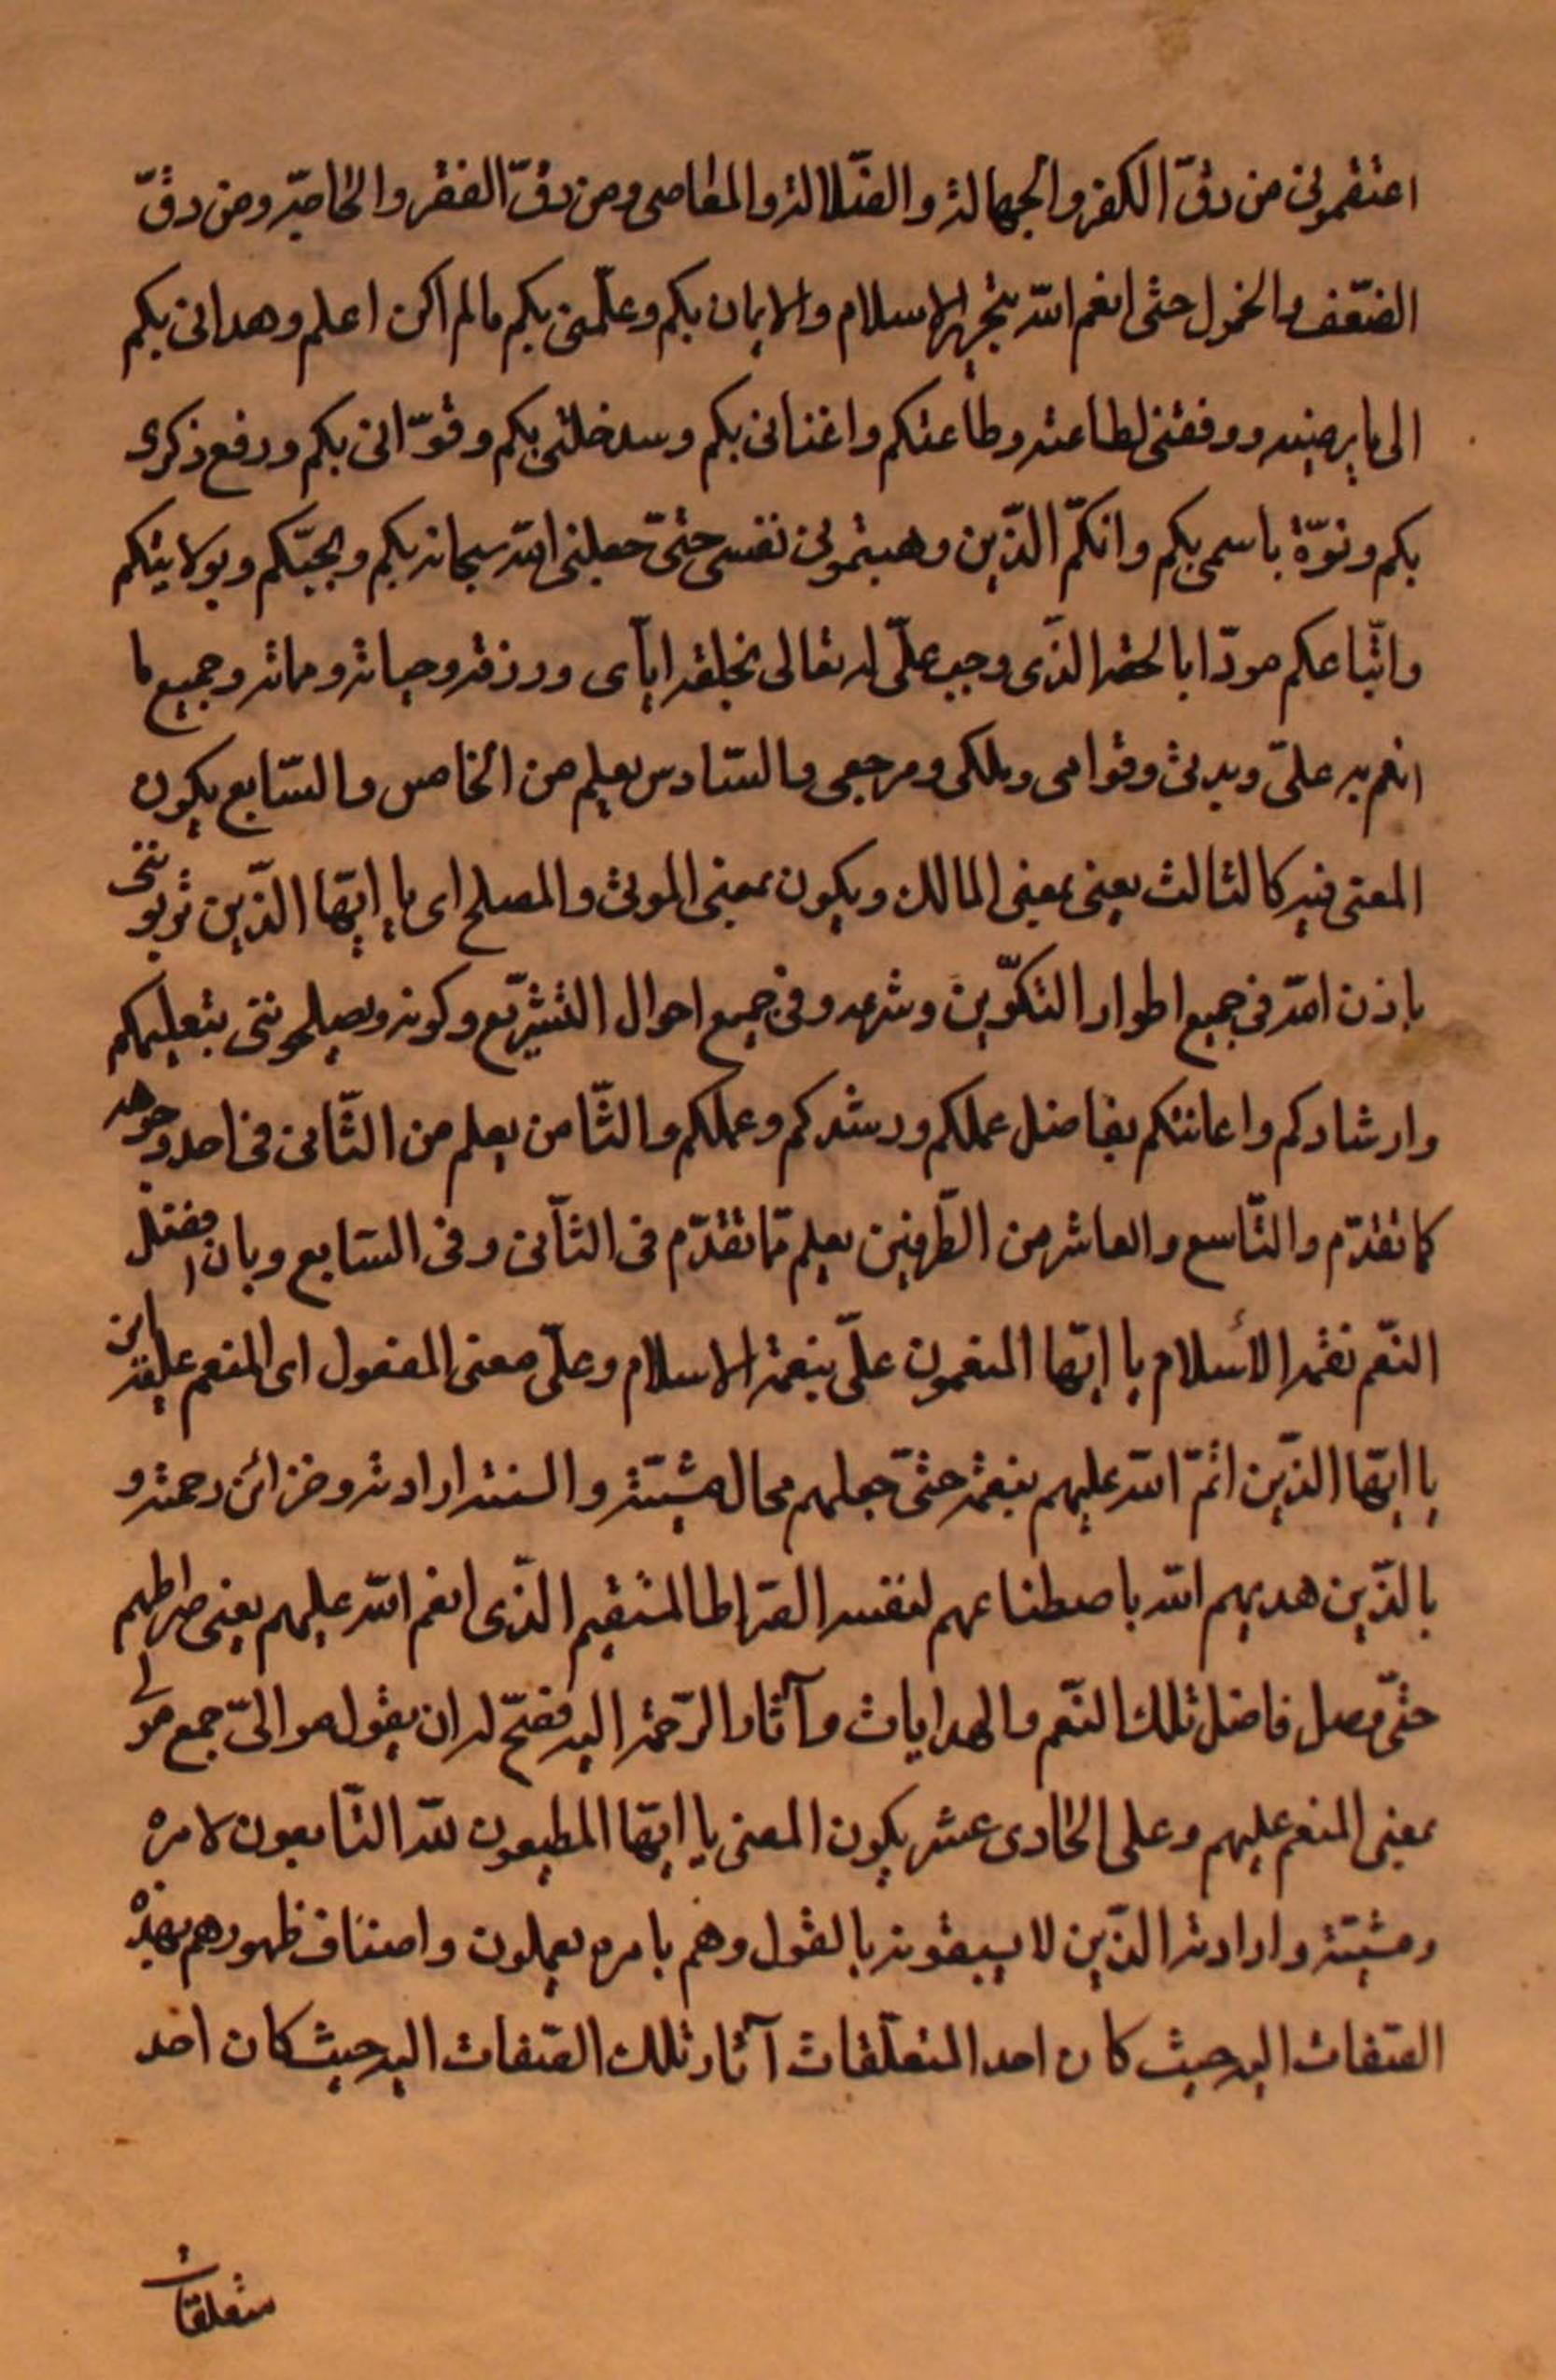 اعتقتمونی من رقّ الکفر والجهالة والضّلالة والمعاصی ومن رقّ الفقر والحاجة ومن رقّ
الضّعف والخمول حتی انعم الله بنجر الاسلام والایمان بکم وعلّمنی بکم مالم اکن اعلم وهدانی بکم
الی ما یرضیه ووفقنی لطاعته وطاعتکم واغنانی بکم وسدخلتی بکم وقوّانی بکم ورفع ذکری
بکم ونوّه باسمی بکم وانکّم الذّین وهبتمونی نفسی حتیّ جعلنی الله سبحانه بکم وبحبّکم وبولایتکم
واتّباعکم مودّا بالحقه الذّی وجب علّی له تعالی بخلقه ایآی ورزقه وحیاته ومماته وجمیع ما
انعم به علّی وبدئی وقوامی وملکی ومرجعی والسّادس یعلم من الخامس والسّابع یکون
المعنی فیه کالثالث یعنی بمعنی المالک ویکون بمعنی المربی والمصلح ای یا ایّها الذّین تربوننی
باذن الله فی جمیع اطوار التکوّین وشرعه وفی جمیع احوال التشریّع وکونه ویصلحوننی بتعلیمکم
وارشادکم واعانتکم بفاضل عملکم ورشدکم وعملکم والثّامن یعلم من الثّانی فی احد وجوهه
کما تقدّم والتّاسع والعاشر من الطّرفین یعلم ممّا تقدّم فی الثاّنی وفی السّابع وبان افضل
النعّم نعمة الأسلام یا ایّها المنعمون علّی بنعمة الاسلام وعلّی معنی المفعول ای المنعم علیه این
یا ایّها الذّین اتمّ الله علیهم بنعمة حتیّ جعلهم محال مشیّته والسنته ارادته وخزائن رحمته و
بالذّین هدیهم الله باصطناعهم لنفسه الصّراط المستقیم الذّی انعم الله علیهم یعنی صراطهم
حتیّ وصل فاضل تلک النعّم والهدایات وآثار الرّحمة الیه فصحّ له ان یقول موالیّ جمع مولی
بمعنی المنعم علیهم وعلی الحادی عشر یکون المعنی یا ایّها المطیعون للّه التّابعون لامره
ومشیّته وارادته الذّین لا یسبقونه بالقول وهم بامره یعملون واصناف ظهورهم بهذه
الصّفات الیه حیث کان احد المتعلّقات آثار تلک الصّفات الیه حیث کان احد
متعلقات